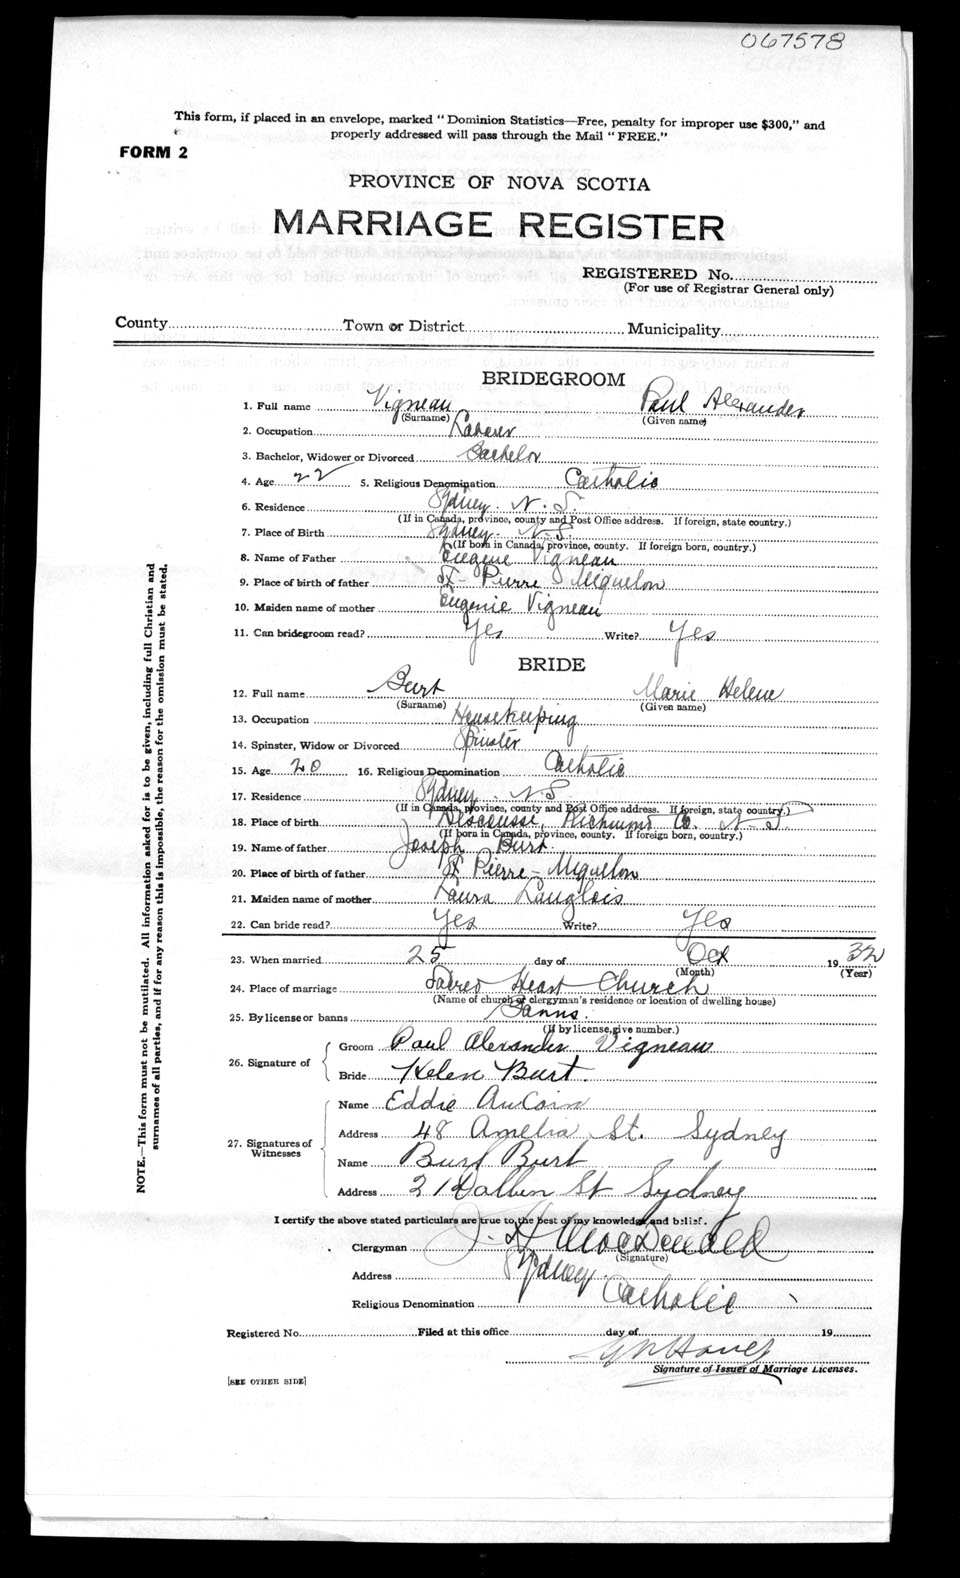 067578
This form, if placed in an envelope, marked "Dominion Statistics—Free, penalty for improper use $300," and
properly addressed will pass through the Mail "FREE."
FORM 2
PROVINCE OF NOVA SCOTIA
MARRIAGE REGISTER
REGISTERED No.
(For use of Registrar General only)
County Town or District Municipality
BRIDEGROOM
1. Full name Vigneau Paul Alexander
(Surname) (Given name)
2. Occupation Laborer
3. Bachelor, Widower or Divorced Bachelor
4. Age 22 5. Religious Denomination Catholic
6. Residence Sydney. N. S.
(If in Canada, province, county and Post Office address. If foreign, state country.)
7. Place of Birth Sydney. N.S.
(If born in Canada, province, county. If foreign born, country.)
8. Name of Father Eugene Vigneau
9. Place of birth of father St Pierre Miquelon
10. Maiden name of mother Eugenie Vigneau
11. Can bridegroom read? Yes Write? Yes
BRIDE
12. Full name Burt Marie Helene
(Surname) (Given name)
13. Occupation Housekeeping
14. Spinster, Widow or Divorced Spinster
15. Age 20 16. Religious Denomination Catholic
17. Residence Sydney. N S
(If in Canada, province, county and Post Office address. If foreign, state country.)
18. Place of birth Descousse, Richmond Co. N-S.
(If born in Canada, province, county. If foreign born, country.)
19. Name of father Joseph Burt.
20. Place of birth of father St Pierre-Miquelon
21. Maiden name of mother Laura Langlois
22. Can bride read? Yes Write? Yes
23. When married 25 day of Oct 1932
(Month) (Year)
24. Place of marriage Sacred Heart Church
(Name of church or clergyman's residence or location of dwelling house)
25. By license or banns Banns.
(If by license, give number.)
26. Signature of Groom Paul Alexander Vigneau
Bride Helen Burt.
27. Signatures of Witnesses Name Eddie AuCoin
Address 48 Amelia St. Sydney
Name Burt
Address St Sydney
I certify the above stated particulars are true to the best of my knowledge and belief.
Clergyman J. H. MacDonald
(Signature)
Address Sydney
Religious Denomination Catholic
Registered No. Filed at this office day of 19
Signature of Issuer of Marriage Licenses.
[SEE OTHER SIDE]
NOTE.—This form must not be mutilated. All information asked for is to be given, including full Christian and
surnames of all parties, and if for any reason this is impossible, the reason for the omission must be stated.